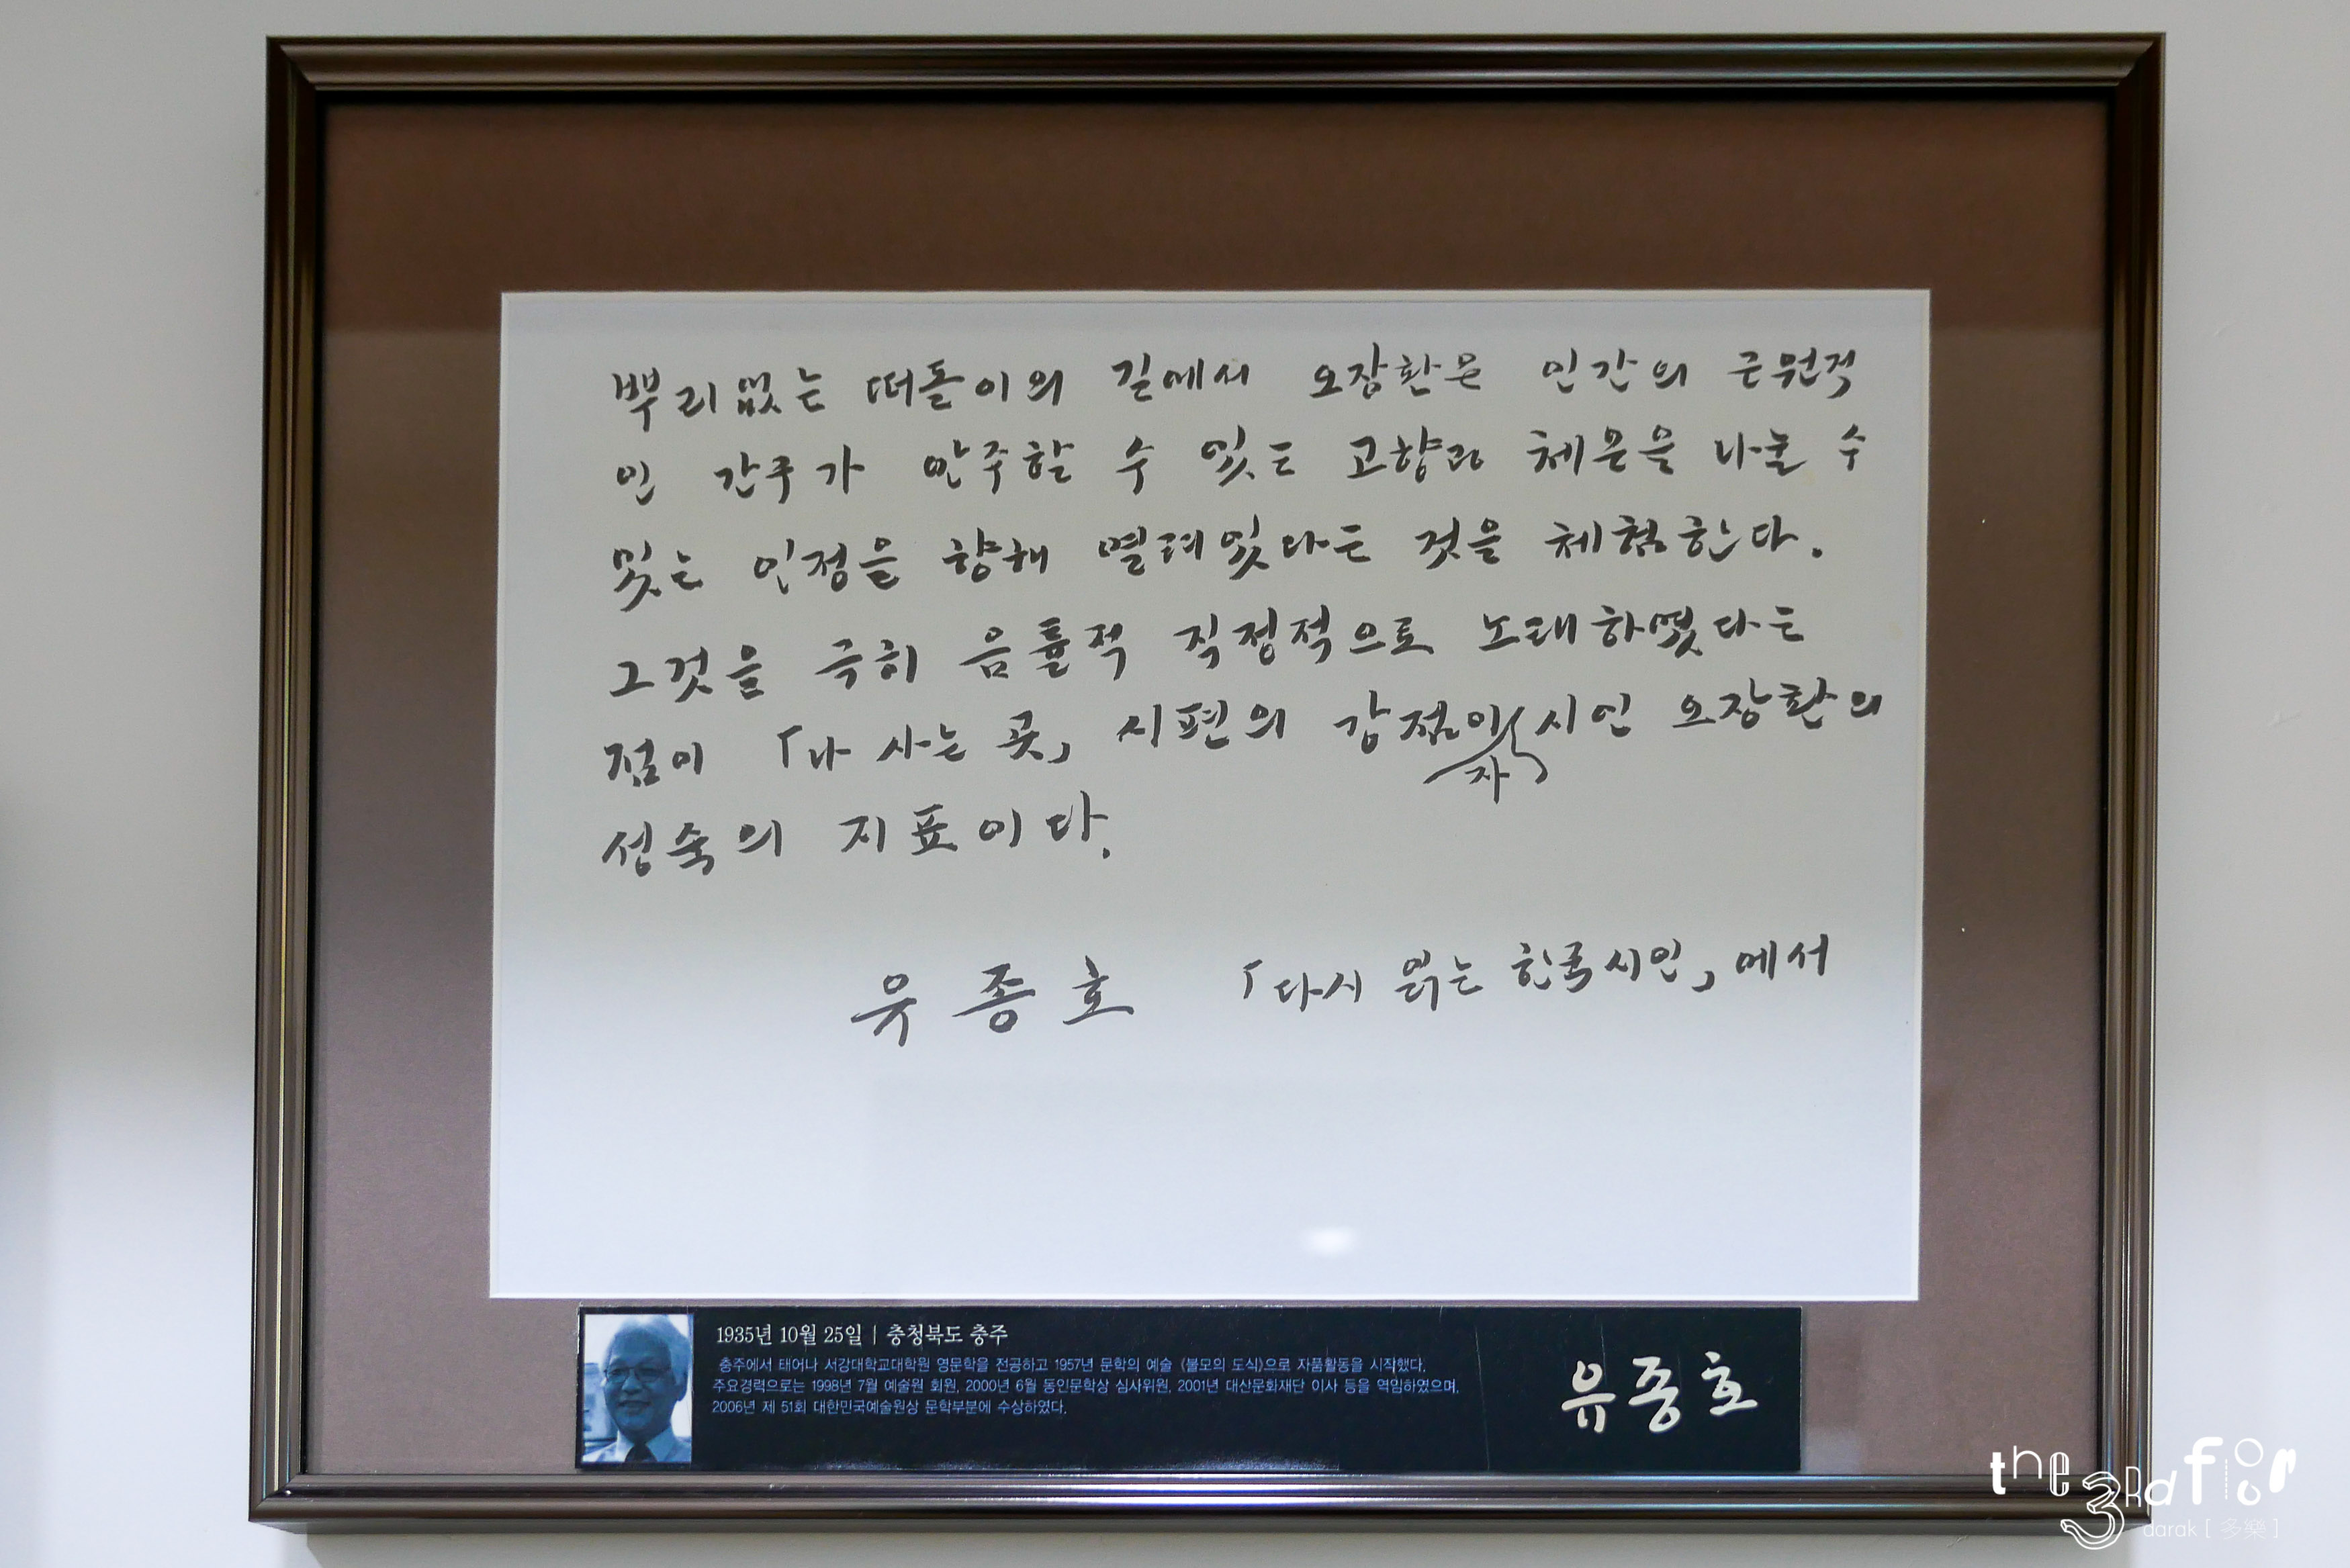 뿌리없는 떠돌이의 길에서 오장환은 인간의 근원적
인 간구가 안주할 수 있는 고향과 체온을 나눌 수
있는 인정을 향해 열려있다는 것을 체험한다.
그것을 극히 음률적 직정적으로 노래하였다는
점이 「나 사는 곳」 시편의 강점이자 시인 오장환의
성숙의 지표이다.
유종호 「다시 읽는 한국시인」에서
1935년 10월 25일 | 충청북도 충주
충주에서 태어나 서강대학교대학원 영문학을 전공하고 1957년 문학의 예술 〈불모의 도식〉으로 자품활동을 시작했다.
주요경력으로는 1998년 7월 예술원 회원, 2000년 6월 동인문학상 심사위원, 2001년 대산문화재단 이사 등을 역임하였으며,
2006년 제 51회 대한민국예술원상 문학부분에 수상하였다.
유종호
the 3RD floor
darak [ 多樂 ]